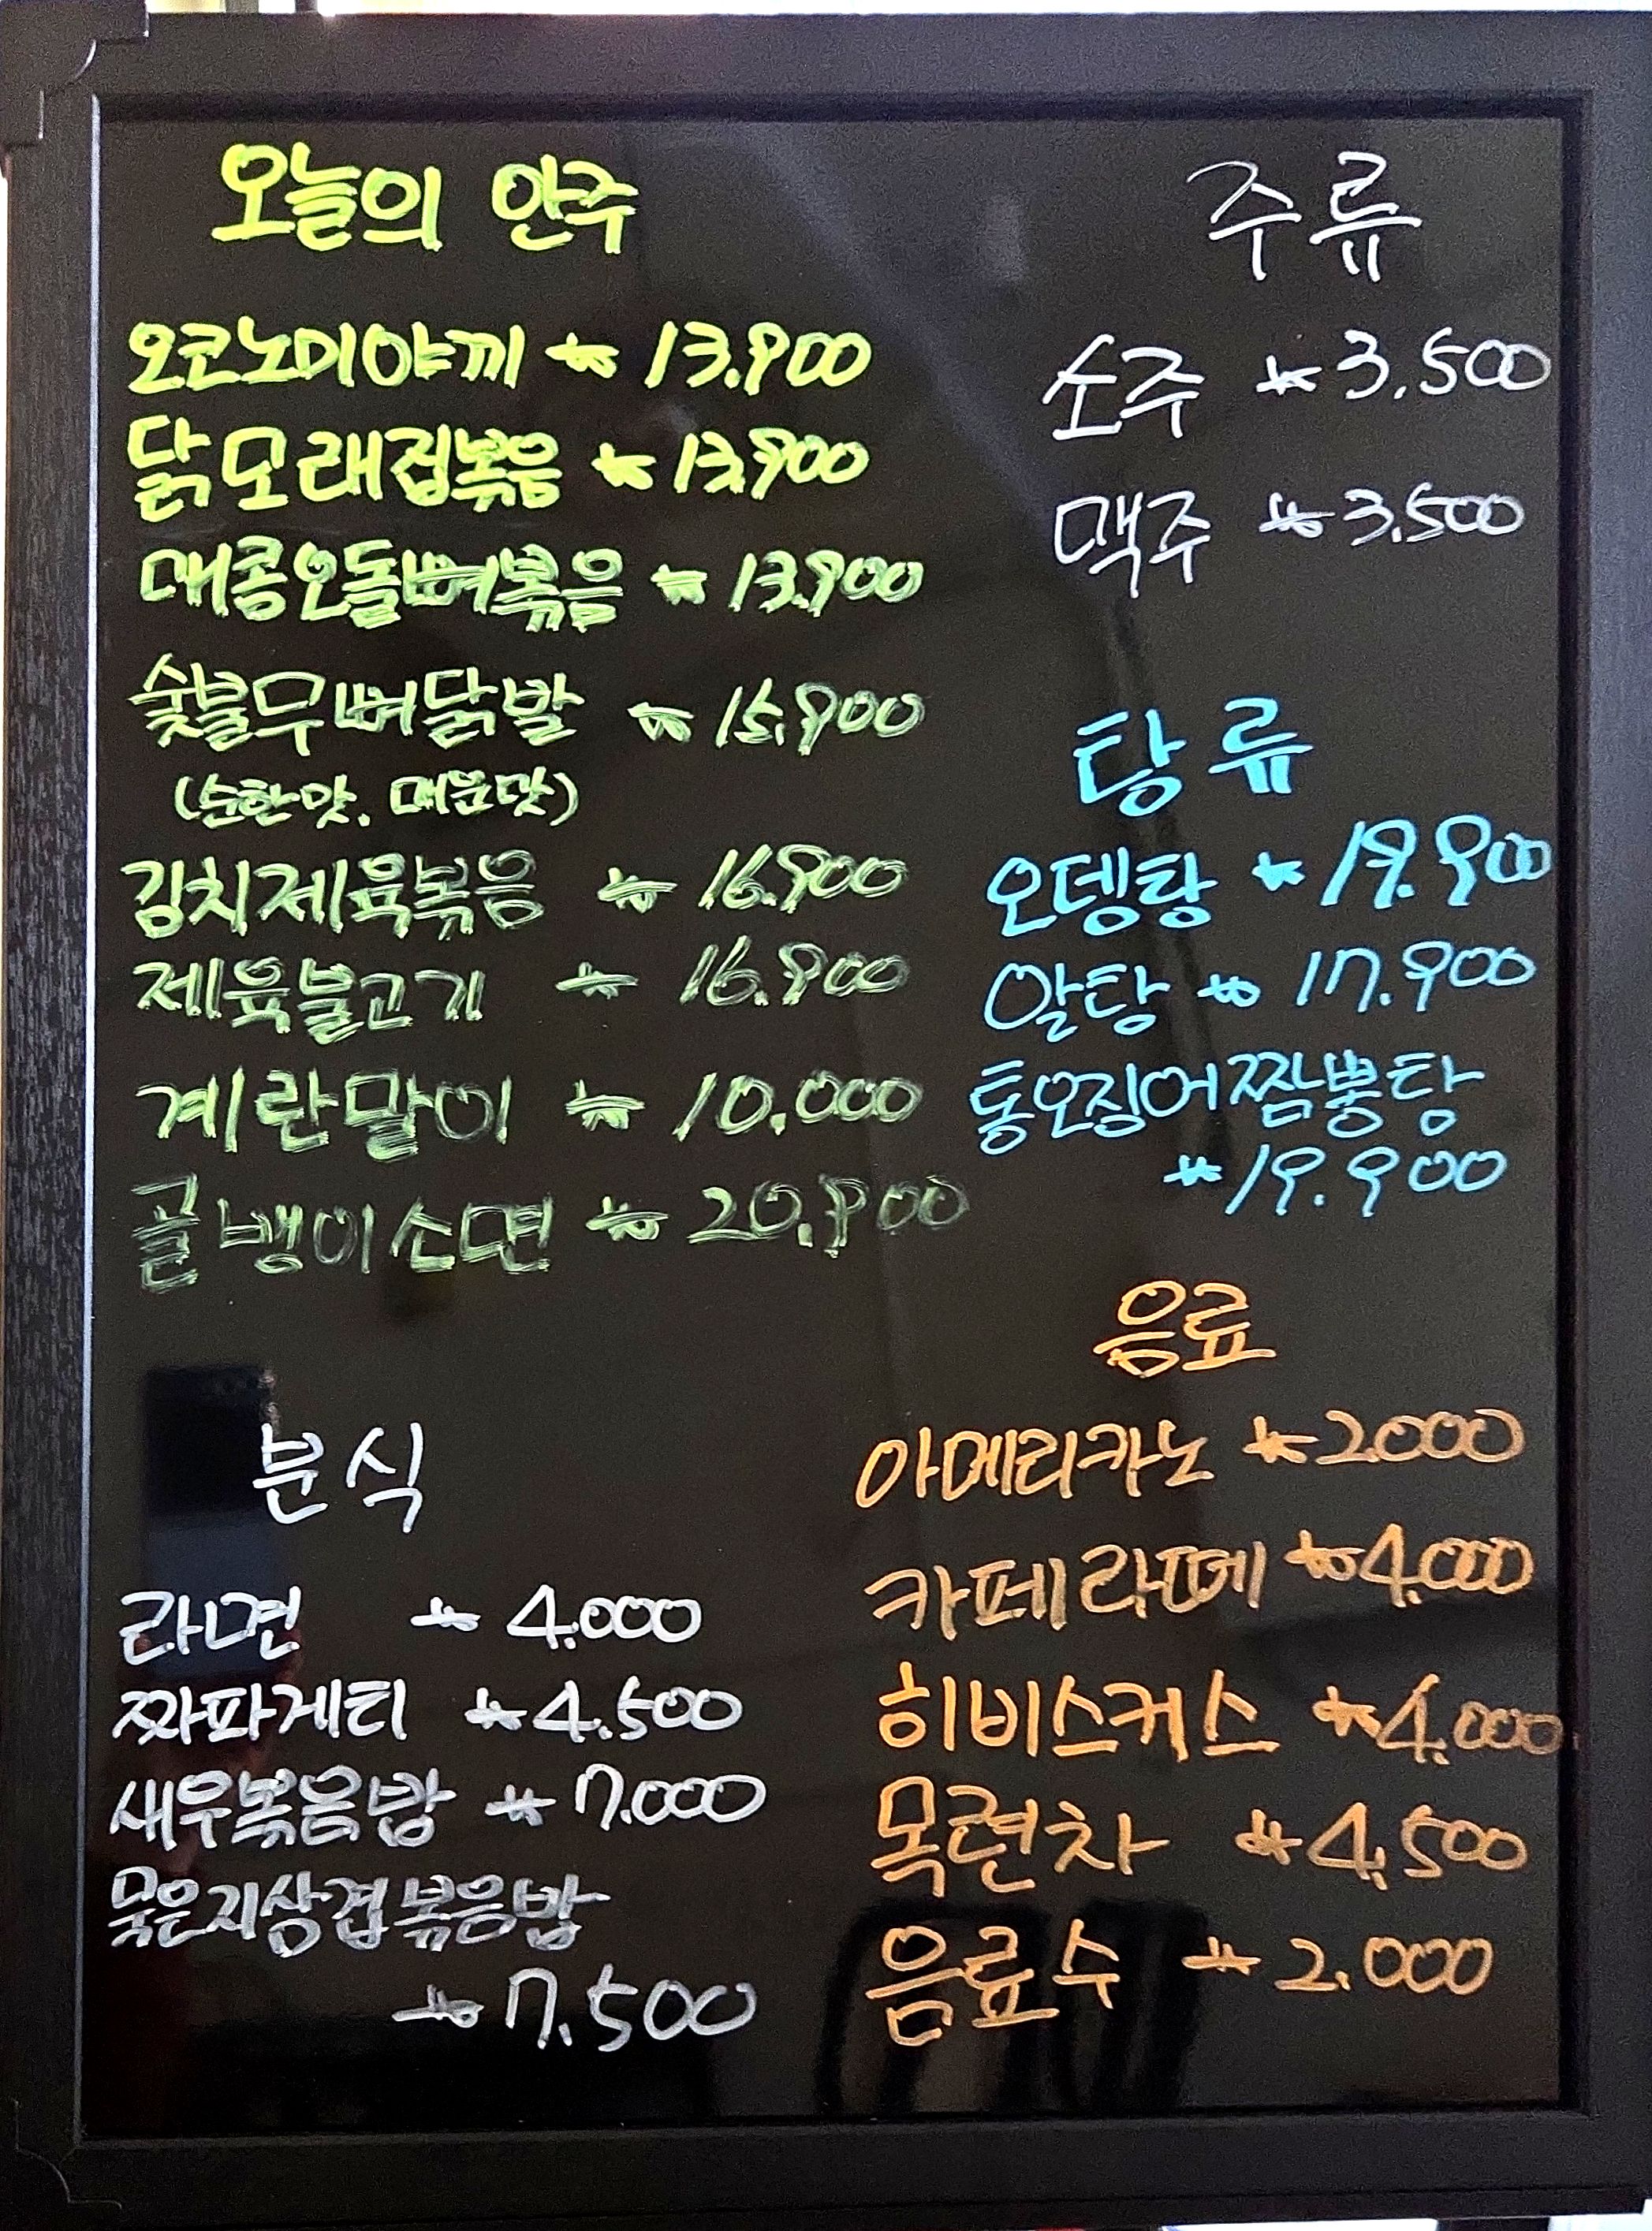 오늘의 안주
오코노미야끼 ₩ 13.900
닭모래집볶음 ₩ 13.900
매콤오돌뼈볶음 ₩ 13.900
숯불무뼈닭발 ₩ 15.900
(순한맛, 매운맛)
김치제육볶음 ₩ 16.900
제육불고기 ₩ 16.900
계란말이 ₩ 10.000
골뱅이소면 ₩ 20.900
분식
라면 ₩ 4.000
짜파게티 ₩ 4.500
새우볶음밥 ₩ 7.000
묵은지삼겹볶음밥
₩ 7.500
주류
소주 ₩ 3.500
맥주 ₩ 3.500
탕류
오뎅탕 ₩ 19.900
알탕 ₩ 17.900
통오징어짬뽕탕
₩ 19.900
음료
아메리카노 ₩ 2000
카페라떼 ₩ 4.000
히비스커스 ₩ 4.000
목련차 ₩ 4.500
음료수 ₩ 2.000